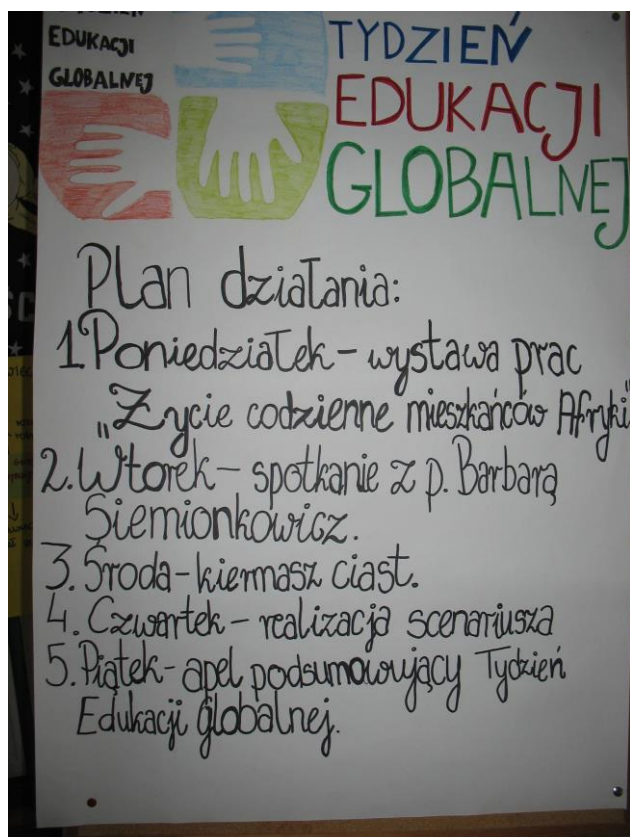 EDUKACJI
GLOBALNEJ
TYDZIEŃ
EDUKACJI
GLOBALNEJ
Plan działania:
1. Poniedziałek – wystawa prac
„Życie codzienne mieszkańców Afryki"
2. Wtorek – spotkanie z p. Barbarą
Siemionkowicz.
3. Środa – kiermasz ciast.
4. Czwartek – realizacja scenariusza
5. Piątek – apel podsumowujący Tydzień
Edukacji Globalnej.